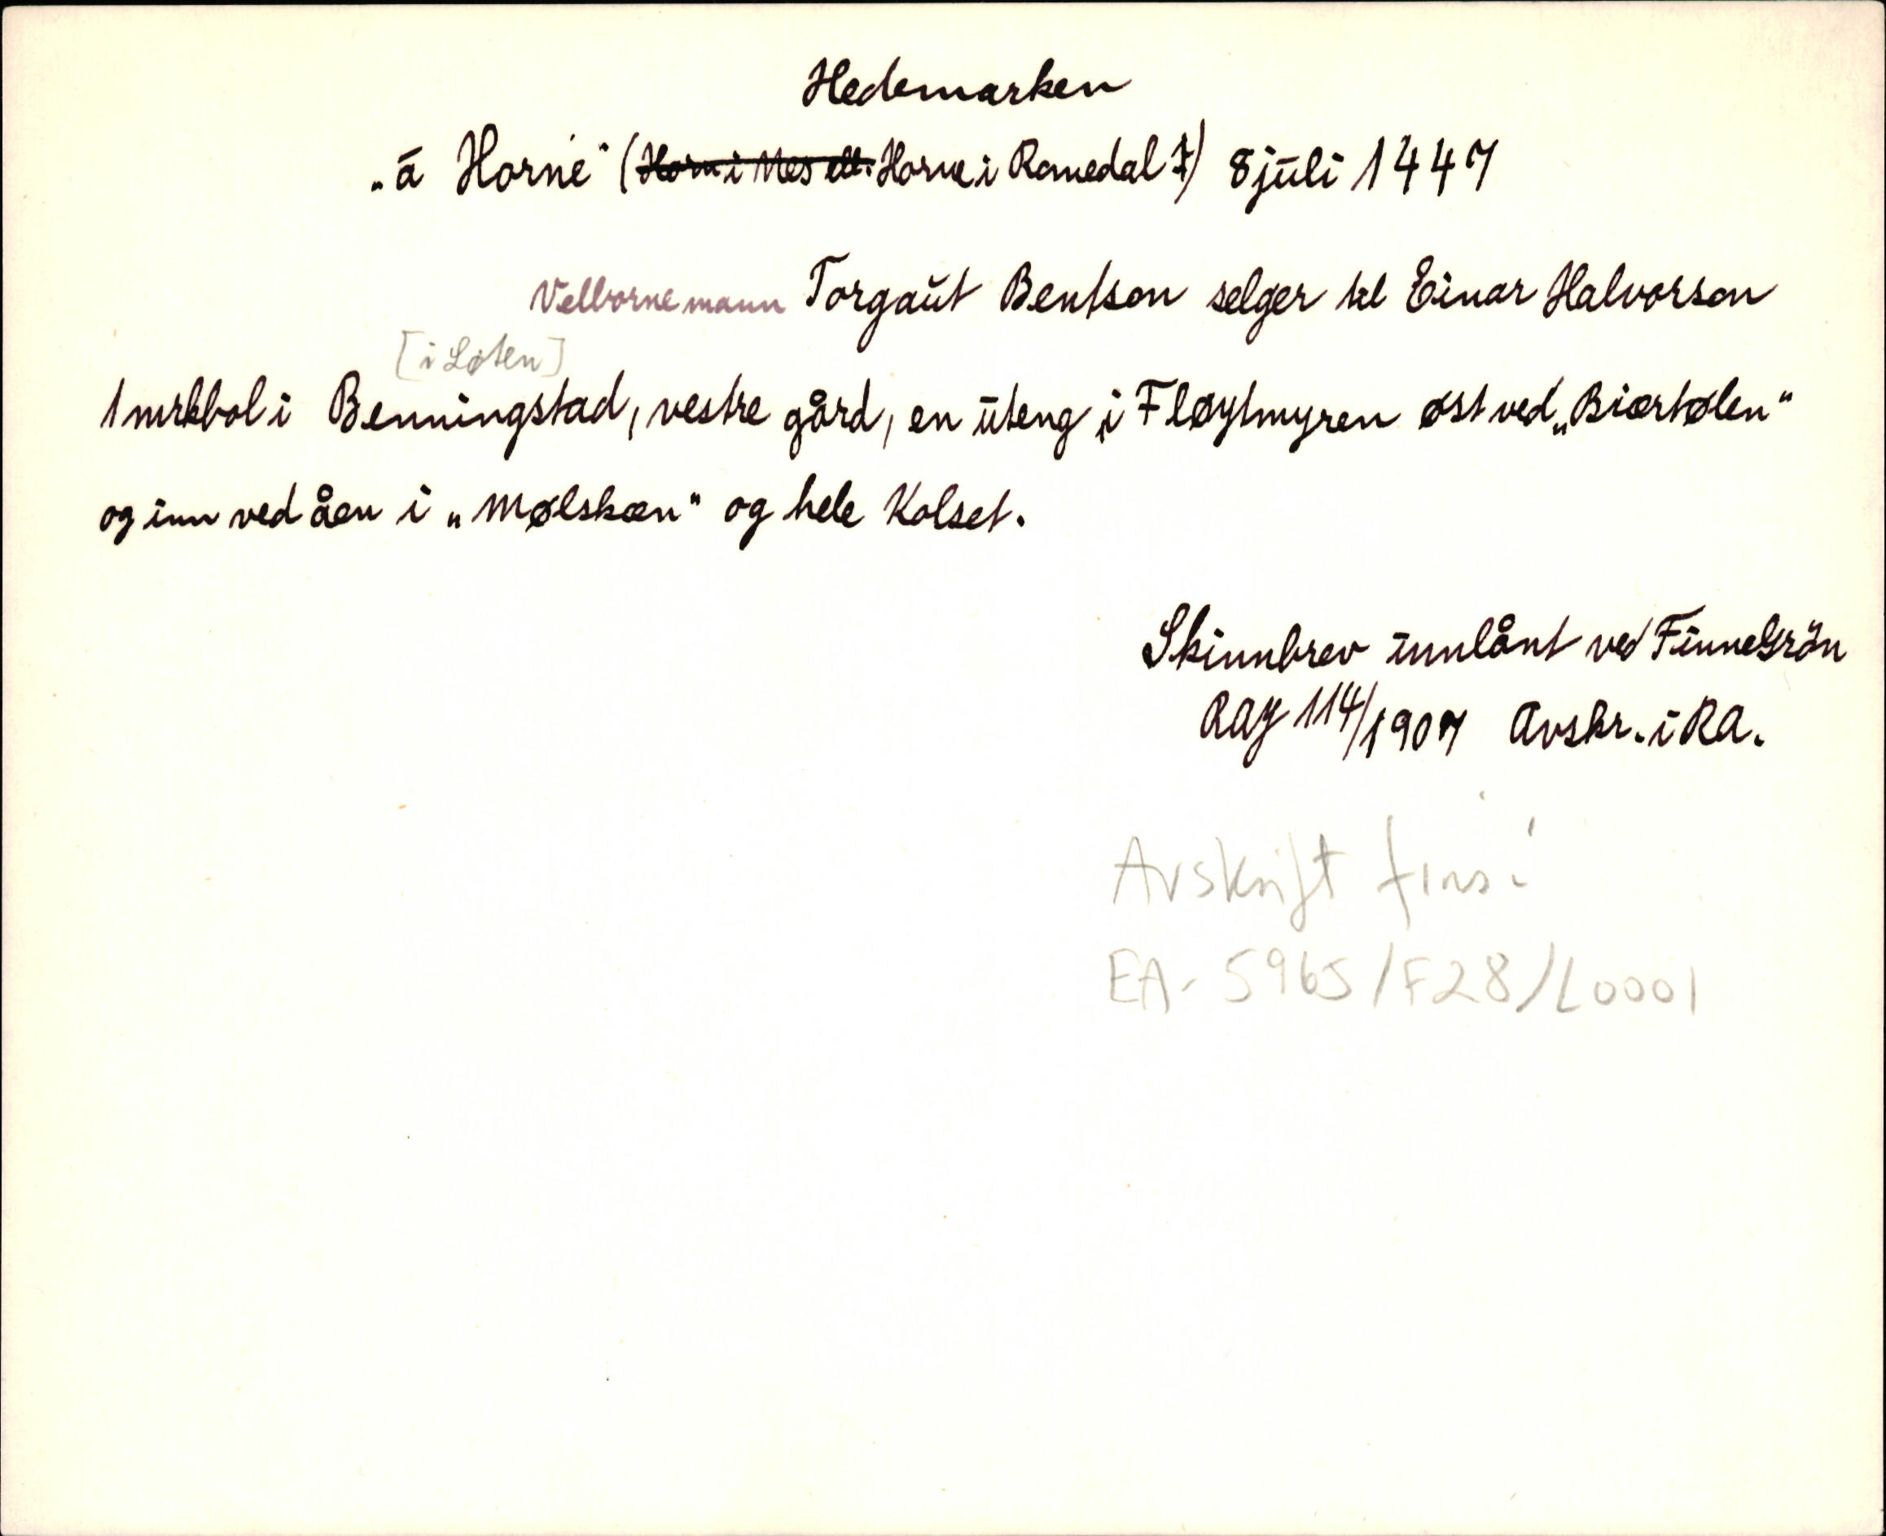 Hedemarken
„á Horne" (Horn i Nes ell. Horne i Romedal ?) 8 juli 1447
Velborne mann Torgaut Bentson selger til Einar Halvorson
[i Løten]
1 mrkbol i Benningstad, vestre gård, en uteng i Fløytmyren øst ved „Biærtølen"
og inn ved åen i „Mølskæn" og hele Kolset.
Skinnbrev innlånt ved Finne Grön
RAJ 114/1907 Avskr. i RA.
Avskrift fins i
EA-5965/F28/L0001